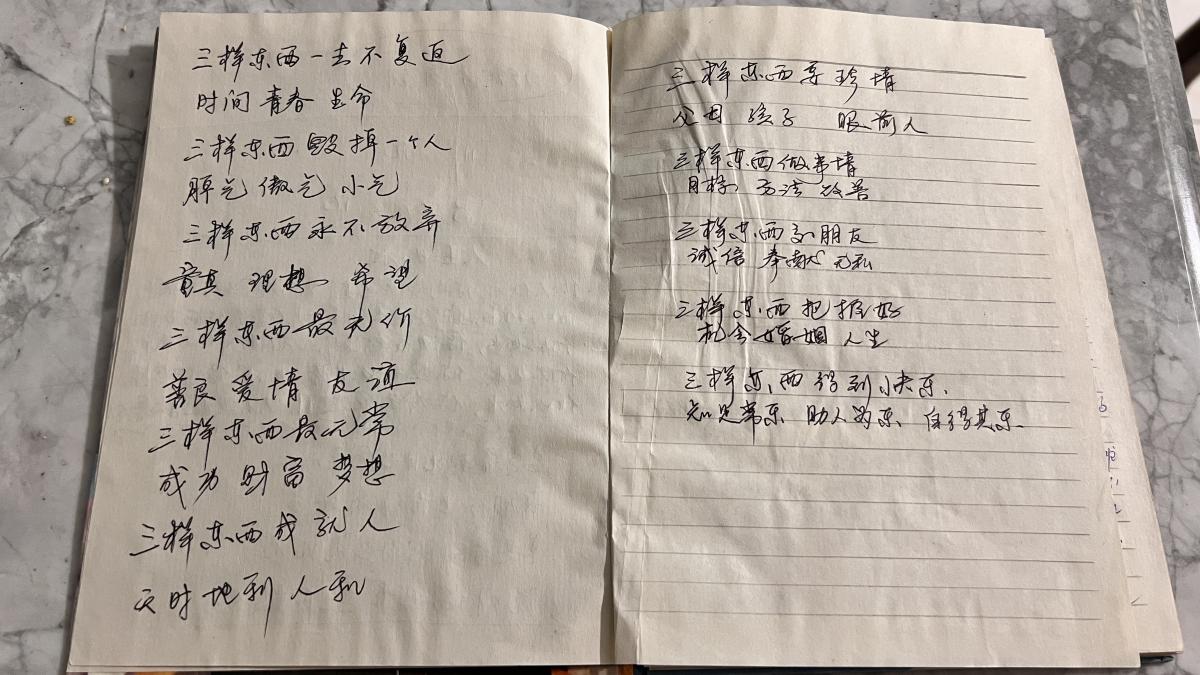 三样东西一去不复返
时间 青春 生命
三样东西毁掉一个人
脾气 傲气 小气
三样东西永不放弃
童真 理想 希望
三样东西最无价
善良 爱情 友谊
三样东西最无常
成功 财富 梦想
三样东西成就人
天时 地利 人和
三样东西要珍惜
父母 孩子 眼前人
三样东西做事情
目标 方法 改善
三样东西交朋友
诚信 奉献 无私
三样东西把握好
机会 婚姻 人生
三样东西得到快乐.
知足常乐 助人为乐 自得其乐